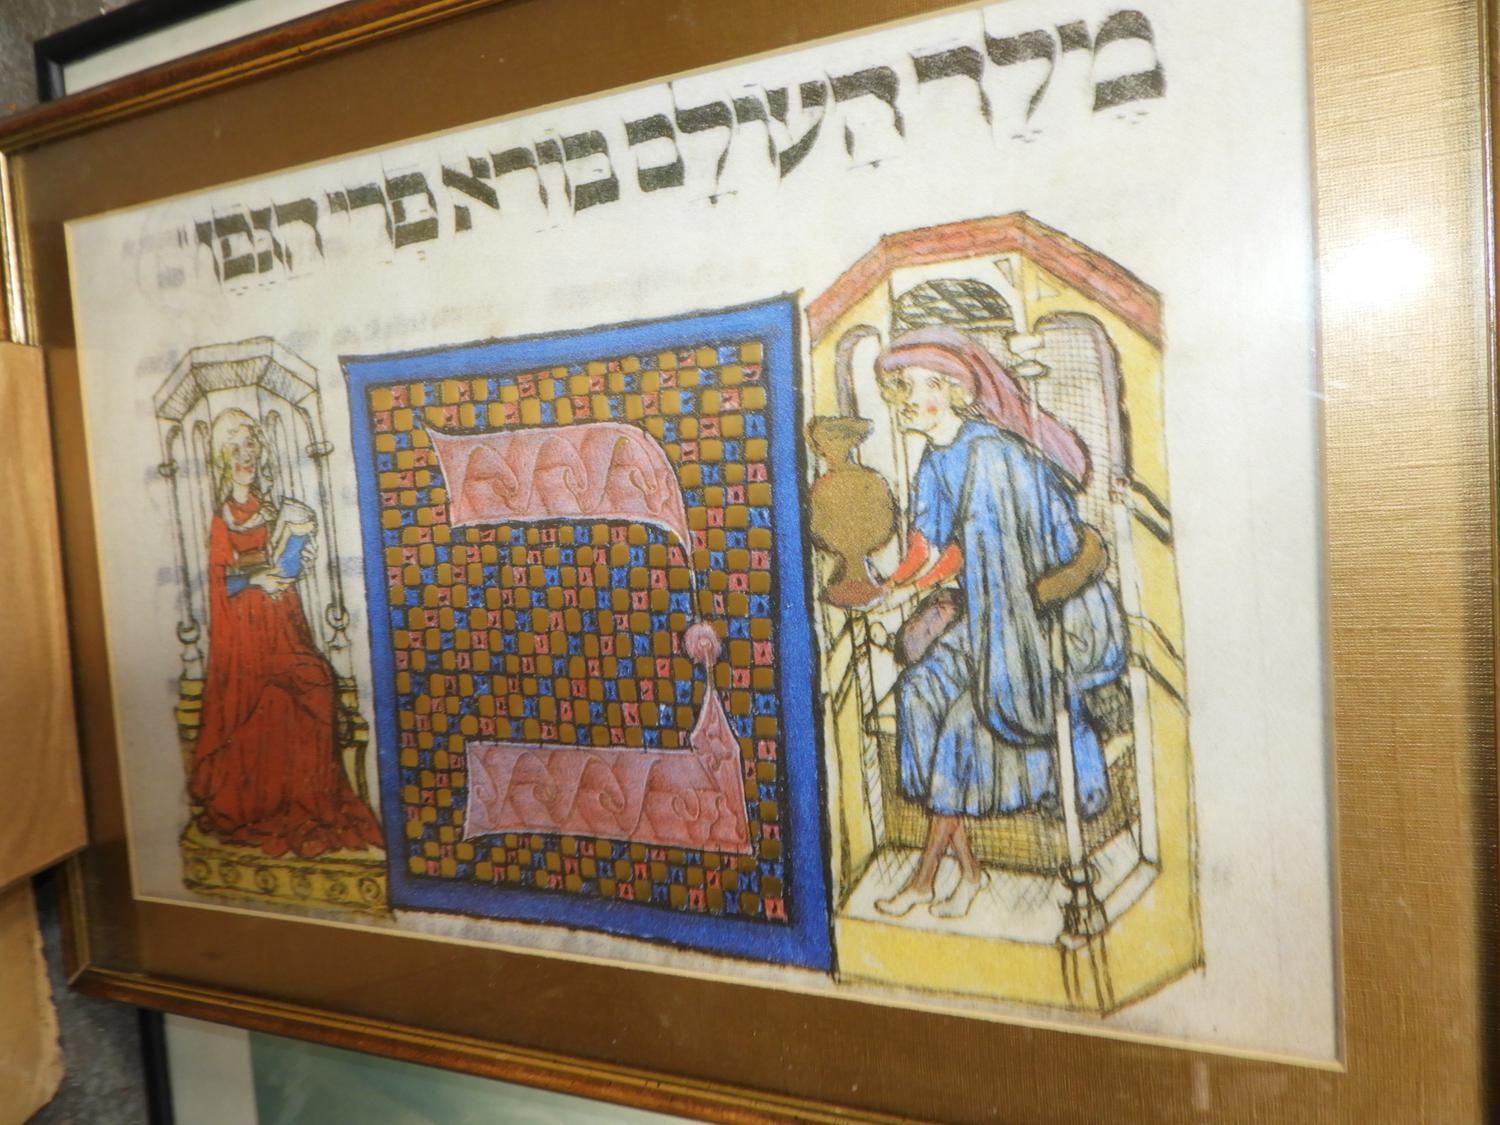 מֶלֶךְ הָעוֹלָם בּוֹרֵא פְּרִי הַגֶּפֶן
ב